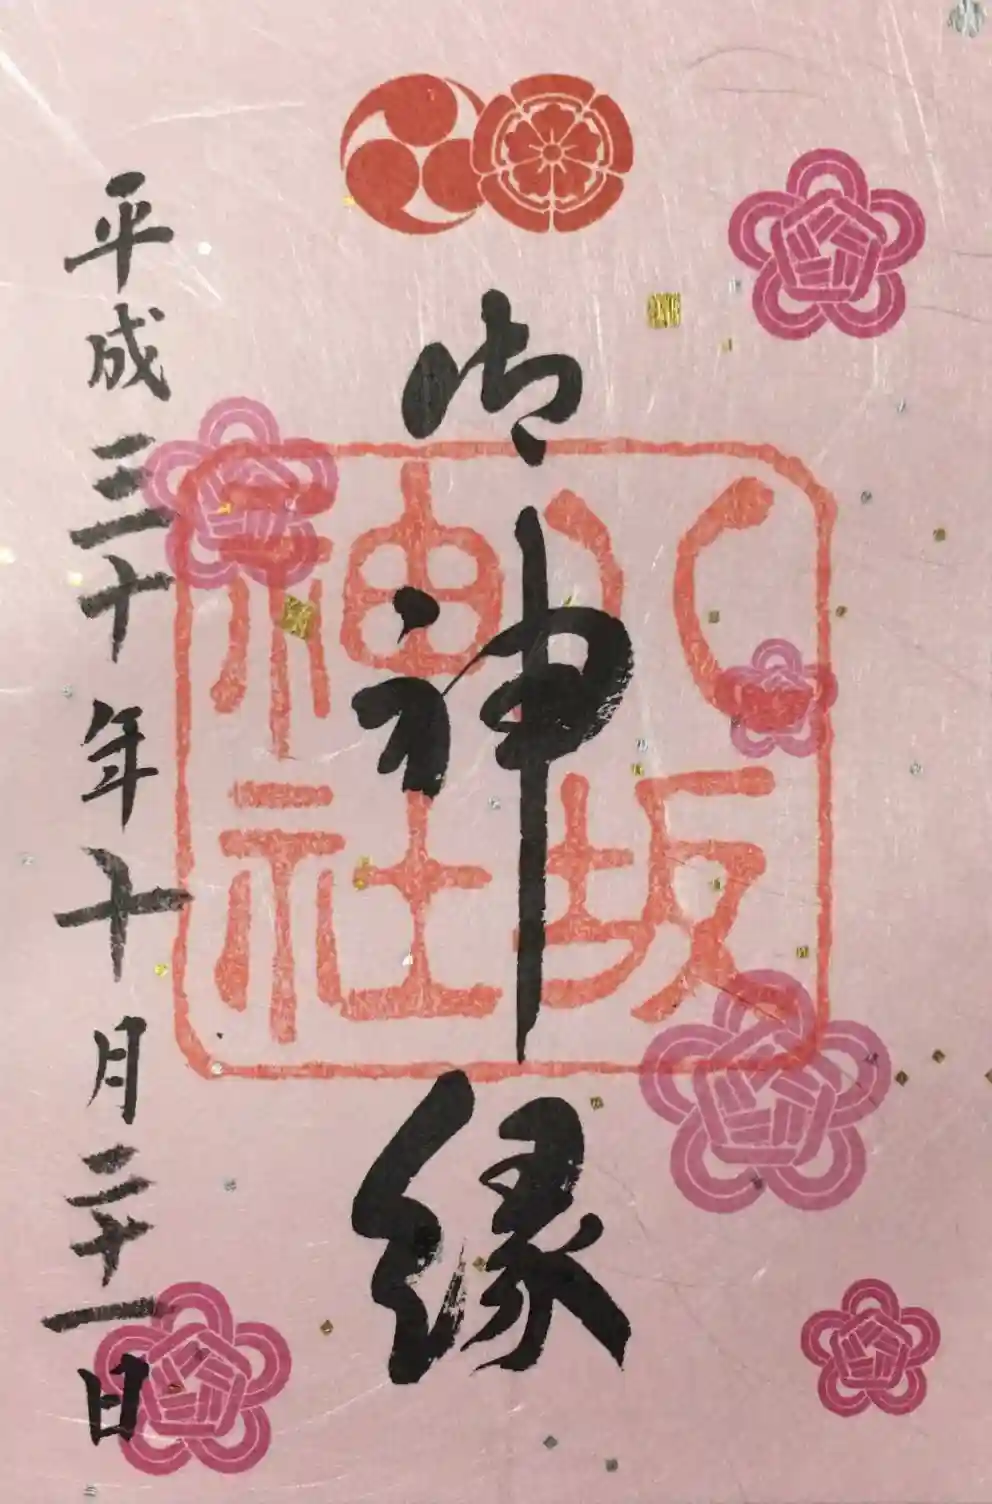 御神縁
八坂神社
平成三十年十月二十一日